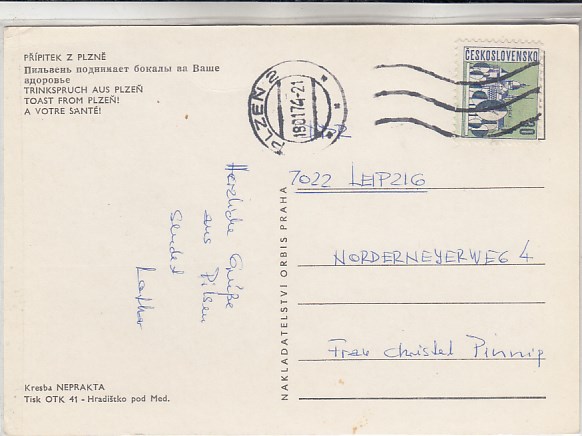 PŘÍPITEK Z PLZNĚ
Пильзень поднимает бокалы за Ваше
здоровье
TRINKSPRUCH AUS PLZEŇ
TOAST FROM PLZEŇ!
A VOTRE SANTÉ!
PLZEŇ 2
180174-21
ČESKOSLOVENSKO
DDR
7022 LEIPZIG
NORDERNEYERWEG 4
Frau Christel Pinnig
Herzliche Grüße
aus Pilsen
sendet
Lothar
NAKLADATELSTVÍ ORBIS PRAHA
Kresba NEPRAKTA
Tisk OTK 41 - Hradištko pod Med.